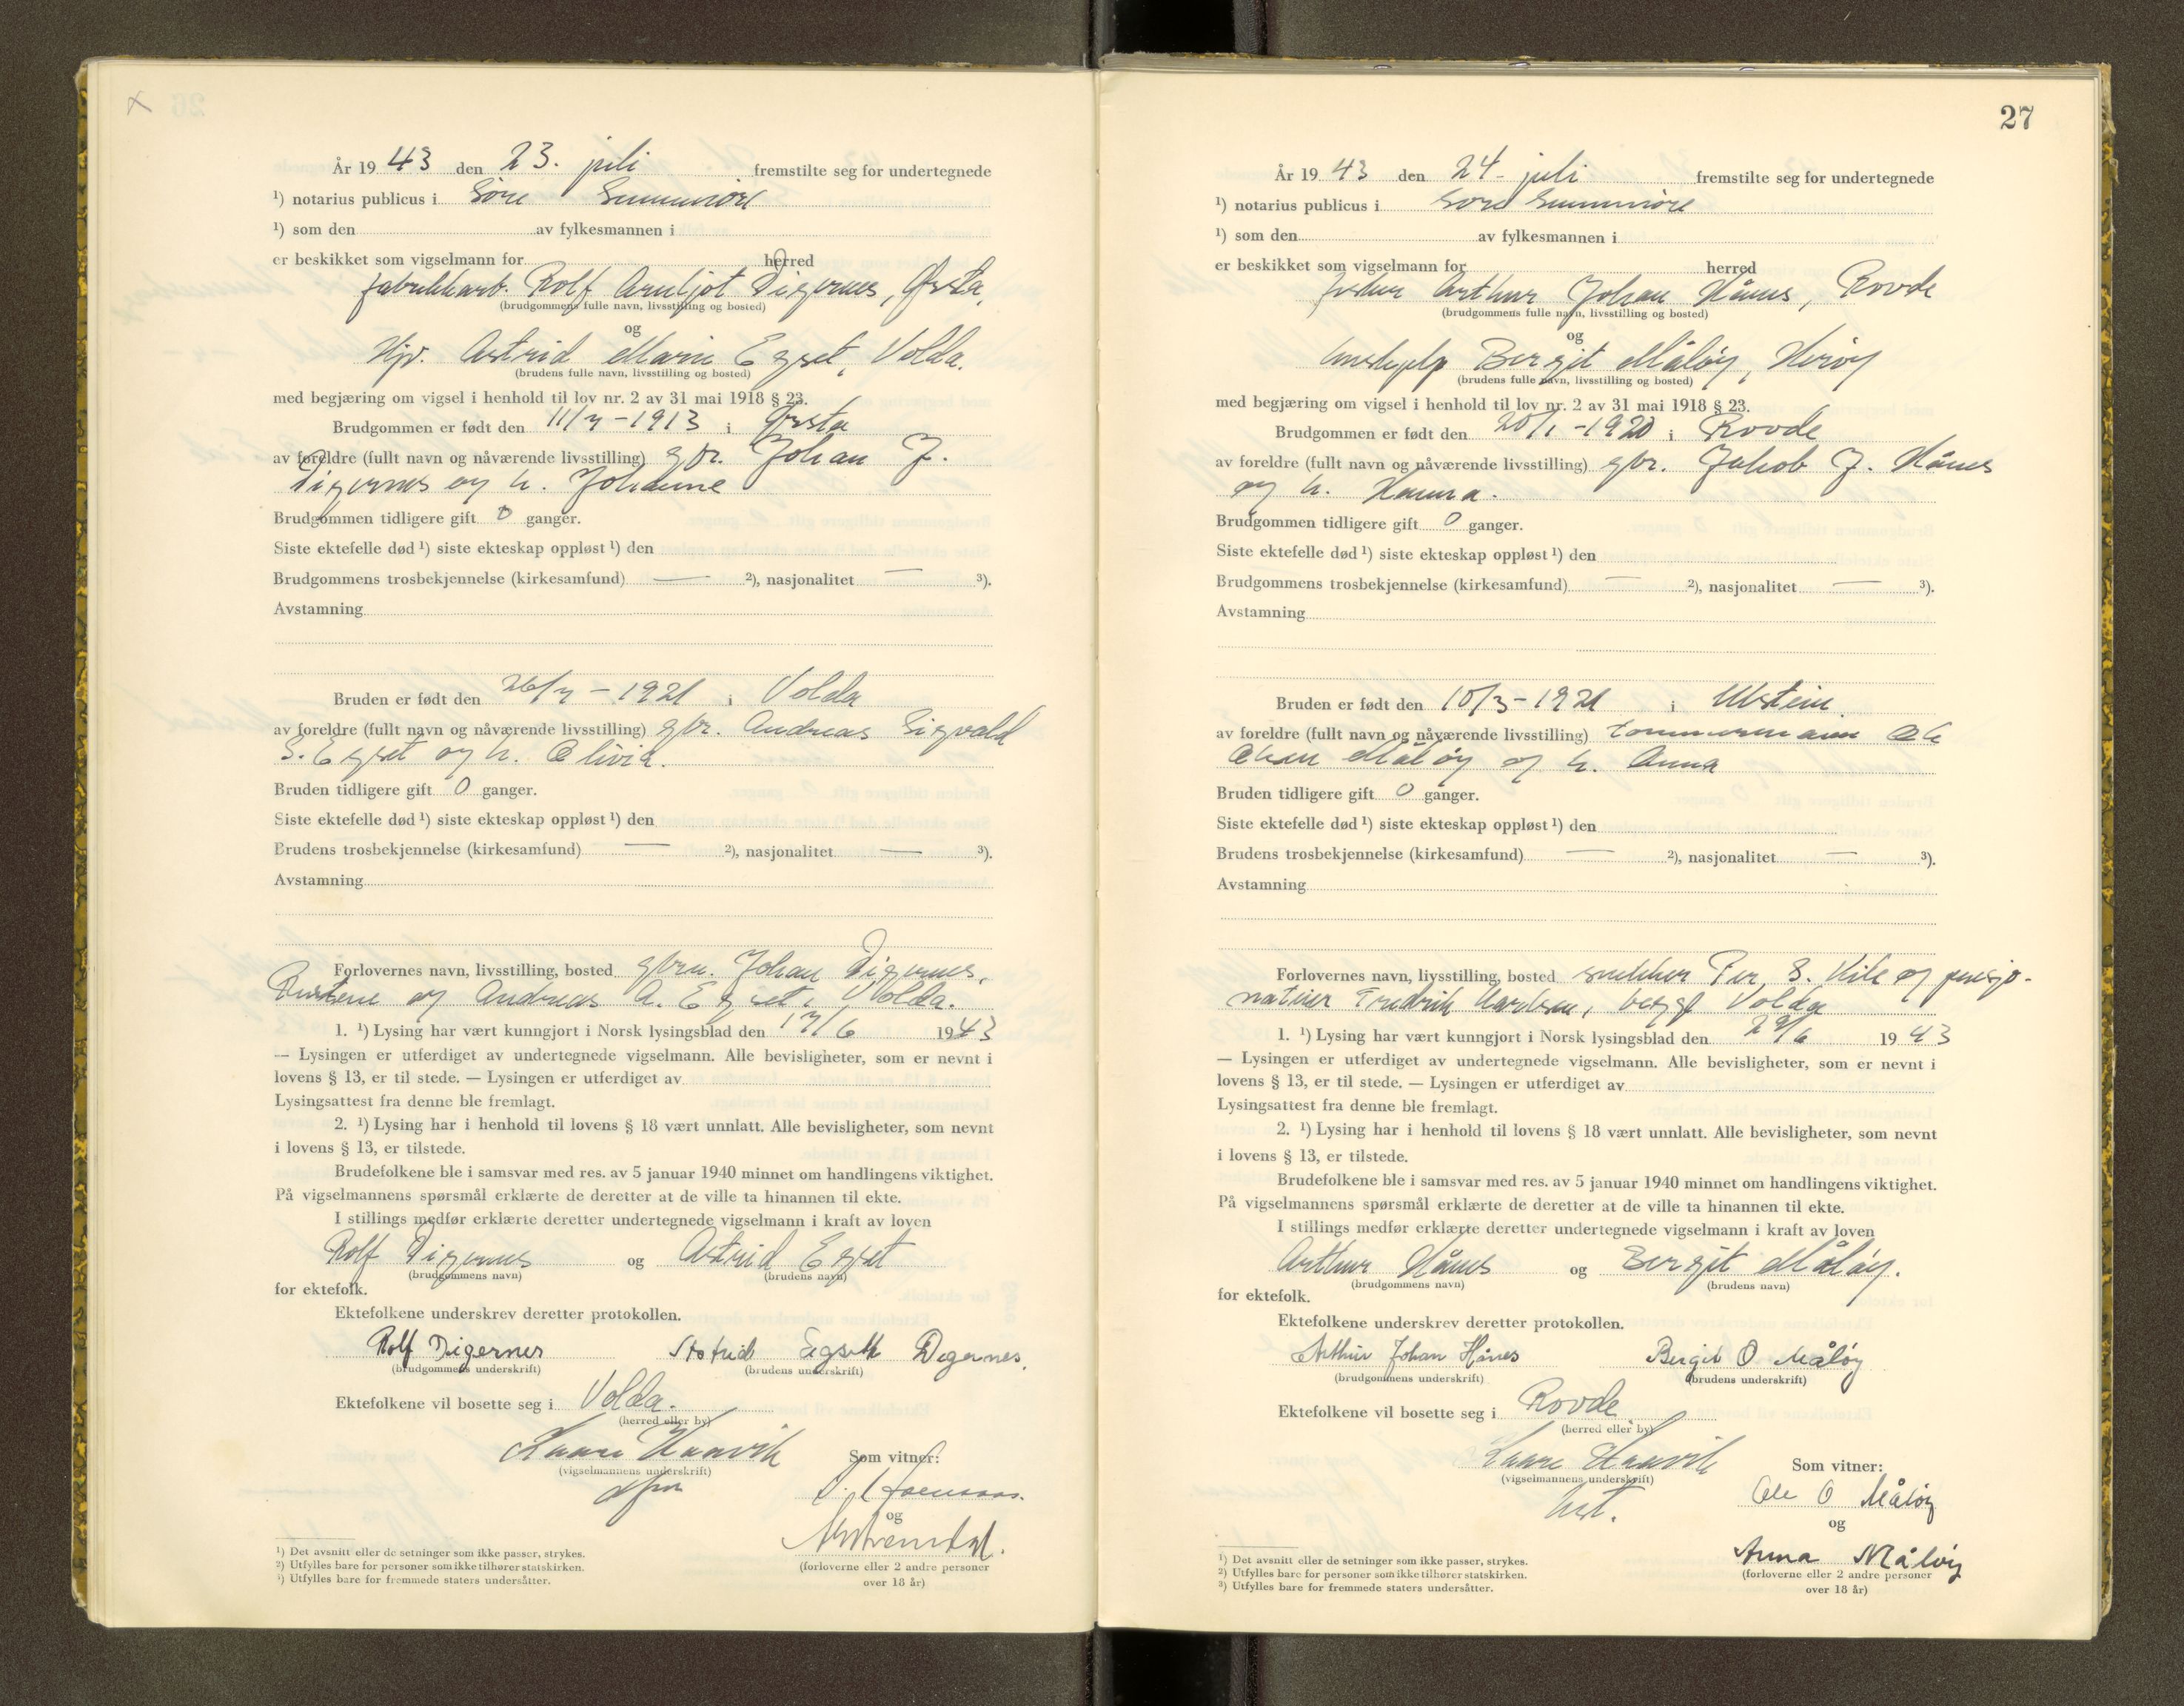 År 19 43 den 23. juli fremstilte seg for undertegnede
¹) notarius publicus i Søre Sunnmøre
¹) som den av fylkesmannen i
er beskikket som vigselmann for herred
fabrikkarb. Rolf Arnljot Digernes, Ørsta,
(brudgommens fulle navn, livsstilling og bosted)
og
Hjv. Astrid Marie Egset, Volda.
(brudens fulle navn, livsstilling og bosted)
med begjæring om vigsel i henhold til lov nr. 2 av 31 mai 1918 § 23.
Brudgommen er født den 11/7-1913 i Ørsta
av foreldre (fullt navn og nåværende livsstilling) gbr. Johan J.
Digernes og h. Johanne
Brudgommen tidligere gift 0 ganger.
Siste ektefelle død ¹) siste ekteskap oppløst ¹) den
Brudgommens trosbekjennelse (kirkesamfund) — ²), nasjonalitet — ³).
Avstamning
Bruden er født den 26/7 - 1921 i Volda
av foreldre (fullt navn og nåværende livsstilling) gbr. Andreas Sigvald
S. Egset og h. Olivia.
Bruden tidligere gift 0 ganger.
Siste ektefelle død ¹) siste ekteskap oppløst ¹) den
Brudens trosbekjennelse (kirkesamfund) — ²), nasjonalitet — ³).
Avstamning
Forlovernes navn, livsstilling, bosted gbrn. Johan Digernes,
og Andreas A. Egset, Volda.
1. ¹) Lysing har vært kunngjort i Norsk lysingsblad den 17/6 1943
— Lysingen er utferdiget av undertegnede vigselmann. Alle bevisligheter, som er nevnt i
lovens § 13, er til stede. — Lysingen er utferdiget av
Lysingsattest fra denne ble fremlagt.
2. ¹) Lysing har i henhold til lovens § 18 vært unnlatt. Alle bevisligheter, som nevnt
i lovens § 13, er tilstede.
Brudefolkene ble i samsvar med res. av 5 januar 1940 minnet om handlingens viktighet.
På vigselmannens spørsmål erklærte de deretter at de ville ta hinannen til ekte.
I stillings medfør erklærte deretter undertegnede vigselmann i kraft av loven
Rolf Digernes og Astrid Egset
(brudgommens navn) (brudens navn)
for ektefolk.
Ektefolkene underskrev deretter protokollen.
Rolf Digernes Astrid Egseth Degernes.
(brudgommens underskrift) (brudens underskrift)
Ektefolkene vil bosette seg i Volda.
(herred eller by)
Kaare Haavik Som vitner:
(vigselmannens underskrift)
og
(forloverne eller 2 andre personer
over 18 år)
¹) Det avsnitt eller de setninger som ikke passer, strykes.
²) Utfylles bare for personer som ikke tilhører statskirken.
³) Utfylles bare for fremmede staters undersåtter.
27
År 19 43 den 24- juli fremstilte seg for undertegnede
¹) notarius publicus i Søre Sunnmøre
¹) som den av fylkesmannen i
er beskikket som vigselmann for herred
fisker Arthur Johan Hånes, Rovde
(brudgommens fulle navn, livsstilling og bosted)
og
Birgit Måløy, Herøy
(brudens fulle navn, livsstilling og bosted)
med begjæring om vigsel i henhold til lov nr. 2 av 31 mai 1918 § 23.
Brudgommen er født den 20/1-1920 i Rovde
av foreldre (fullt navn og nåværende livsstilling) gbr. Jakob J. Hånes
og h. Hanna.
Brudgommen tidligere gift 0 ganger.
Siste ektefelle død ¹) siste ekteskap oppløst ¹) den
Brudgommens trosbekjennelse (kirkesamfund) — ²), nasjonalitet — ³).
Avstamning
Bruden er født den 10/3-1921 i Ulstein.
av foreldre (fullt navn og nåværende livsstilling) tømmermann Ole
Olsen Måløy og h. Anna
Bruden tidligere gift 0 ganger.
Siste ektefelle død ¹) siste ekteskap oppløst ¹) den
Brudens trosbekjennelse (kirkesamfund) — ²), nasjonalitet — ³).
Avstamning
Forlovernes navn, livsstilling, bosted snekker Per S. Kile og pensjo-
nateier Fredrik Karlsen, begge Volda
1. ¹) Lysing har vært kunngjort i Norsk lysingsblad den 29/6 19 43
— Lysingen er utferdiget av undertegnede vigselmann. Alle bevisligheter, som er nevnt i
lovens § 13, er til stede. — Lysingen er utferdiget av
Lysingsattest fra denne ble fremlagt.
2. ¹) Lysing har i henhold til lovens § 18 vært unnlatt. Alle bevisligheter, som nevnt
i lovens § 13, er tilstede.
Brudefolkene ble i samsvar med res. av 5 januar 1940 minnet om handlingens viktighet.
På vigselmannens spørsmål erklærte de deretter at de ville ta hinannen til ekte.
I stillings medfør erklærte deretter undertegnede vigselmann i kraft av loven
Arthur Hånes og Bergit Måløy.
(brudgommens navn) (brudens navn)
for ektefolk.
Ektefolkene underskrev deretter protokollen.
Arthur Johan Hånes Bergit O Måløy
(brudgommens underskrift) (brudens underskrift)
Ektefolkene vil bosette seg i Rovde
(herred eller by)
Kaare Haavik Som vitner:
(vigselmannens underskrift)
Ole O Måløy
og
Anna Måløy
(forloverne eller 2 andre personer
over 18 år)
¹) Det avsnitt eller de setninger som ikke passer, strykes.
²) Utfylles bare for personer som ikke tilhører statskirken.
³) Utfylles bare for fremmede staters undersåtter.